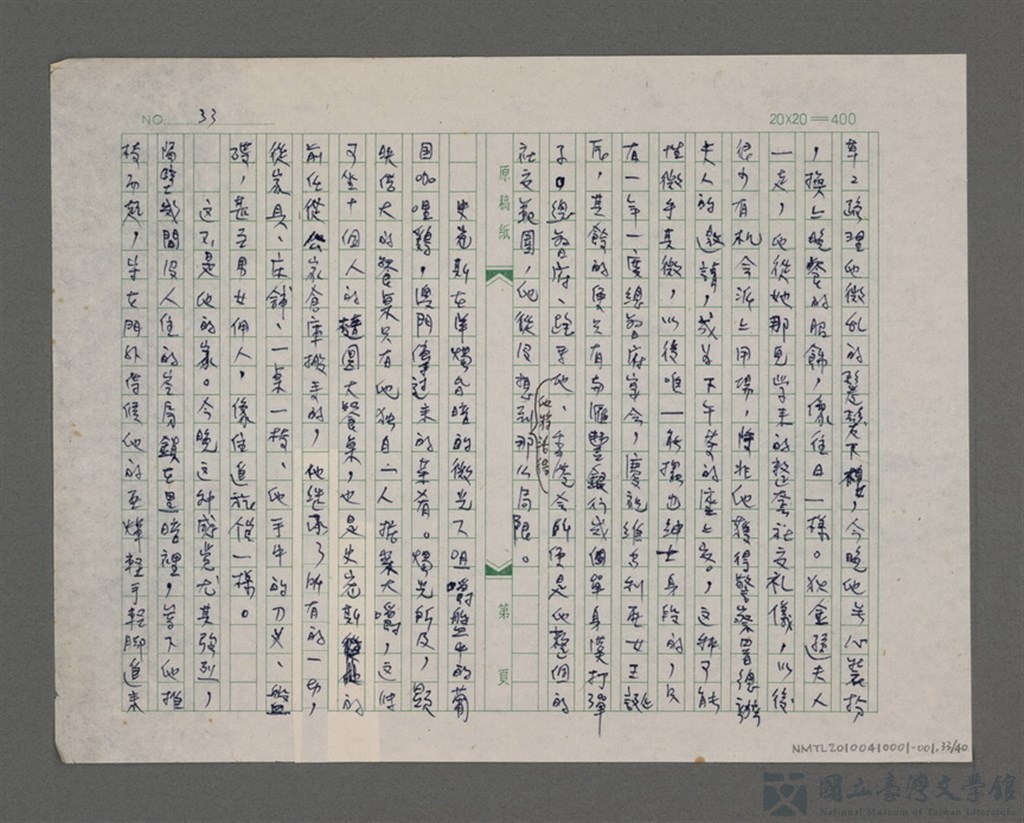 NO. 33
20X20=400
草草處理他微乱的鬢髮下襬，今晚他無心裝扮
，換上晚餐的服飾，像往日一樣。狄金遜夫人
一走，他從她那兒学来的整套社交礼儀，以後
很少有机会派上用場，除非他獲得警察署總辦
夫人的邀請，成为下午茶的座上客。這种可能
性微乎其微，以後唯一能擺出紳士身段的，只
有一年一度總督府宴会，慶祝維多利亞女王誕
辰，其餘的便只有与滙豐銀行或团單身漢打彈
子。總督府、跑马地、香港会所便是他整個的
社交範圍，他從沒想到他將活得那么局限。
原稿紙
第 頁
史密斯在洋燭昏暗的微光下咀嚼盤中的葡
国咖喱鷄，澳門傳过来的菜肴。燭光所及，顯
映偌大的餐桌只有他独自一人据案大嚼，這件
可坐十個人的橢圓大餐桌，也是史密斯的
前任從公家倉庫搬来的，他继承了所有的一切，
從家具、床舖、一桌一椅、他手中的刀叉、盤
碟，甚至男女佣人，像住進旅館一樣。
这不是他的家。今晚这种感覚尤其強烈，
隔壁幾間沒人住的空房鎖在黑暗裡，當下他推
椅而起，守在門外等候他的亞炜輕手輕脚進来
NMTL20100410001-001.33/40
國立臺灣文學館
National Museum of Taiwan Literature